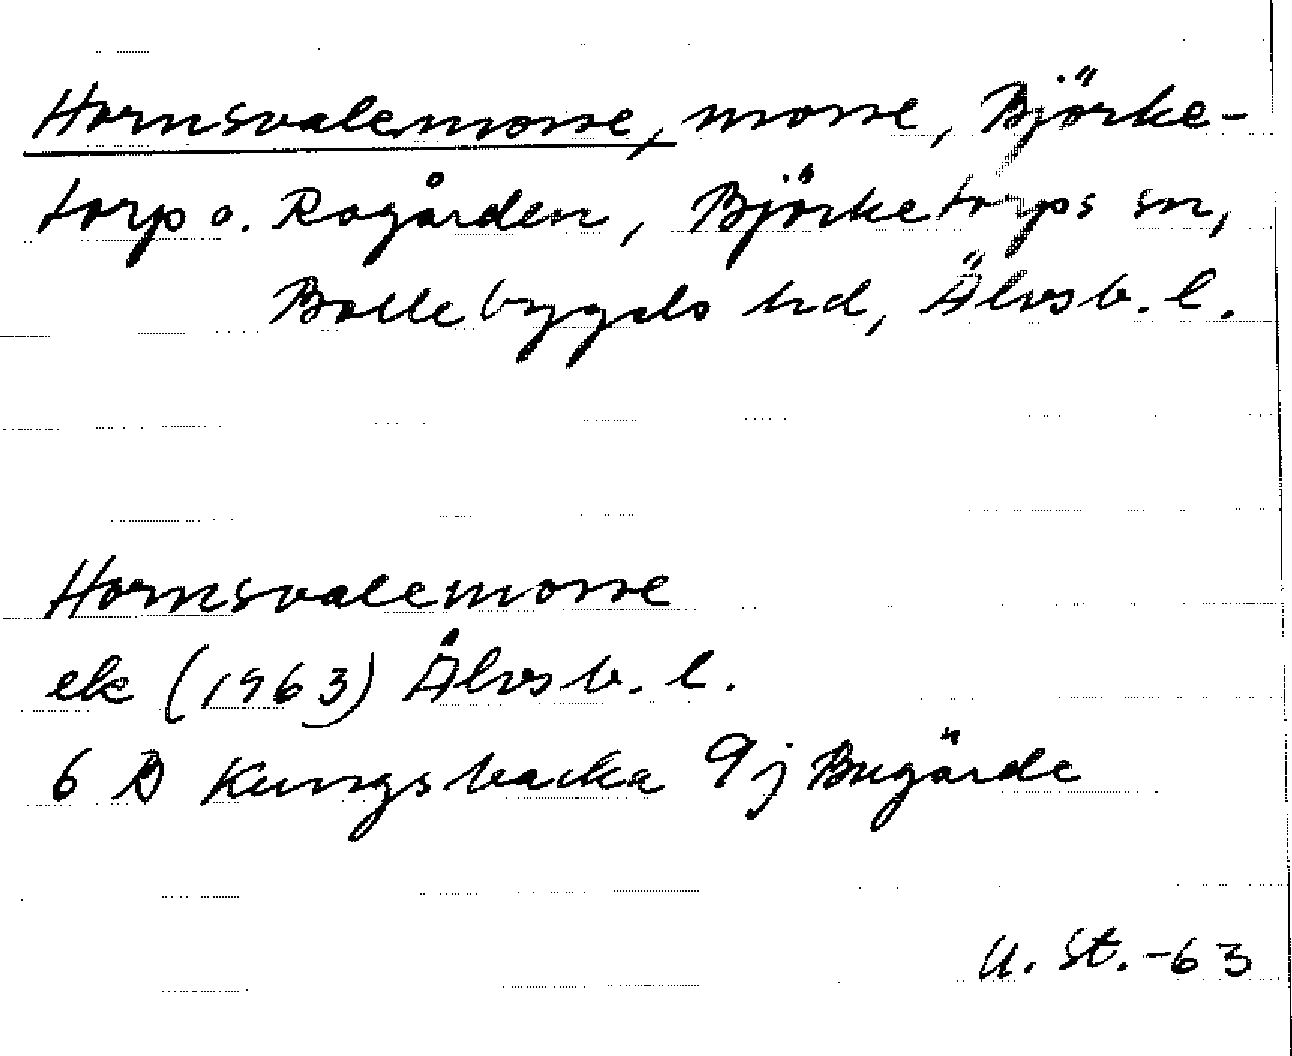 Hornsvalemosse, mosse, Björke-
torp o. Rogården, Björketorps sn,
Bollebygds hd, Älvsb. l.
Hornsvalemosse
ek (1963) Älvsb. l.
6 B Kungsbacka 9j Bugärde
U. St. -63